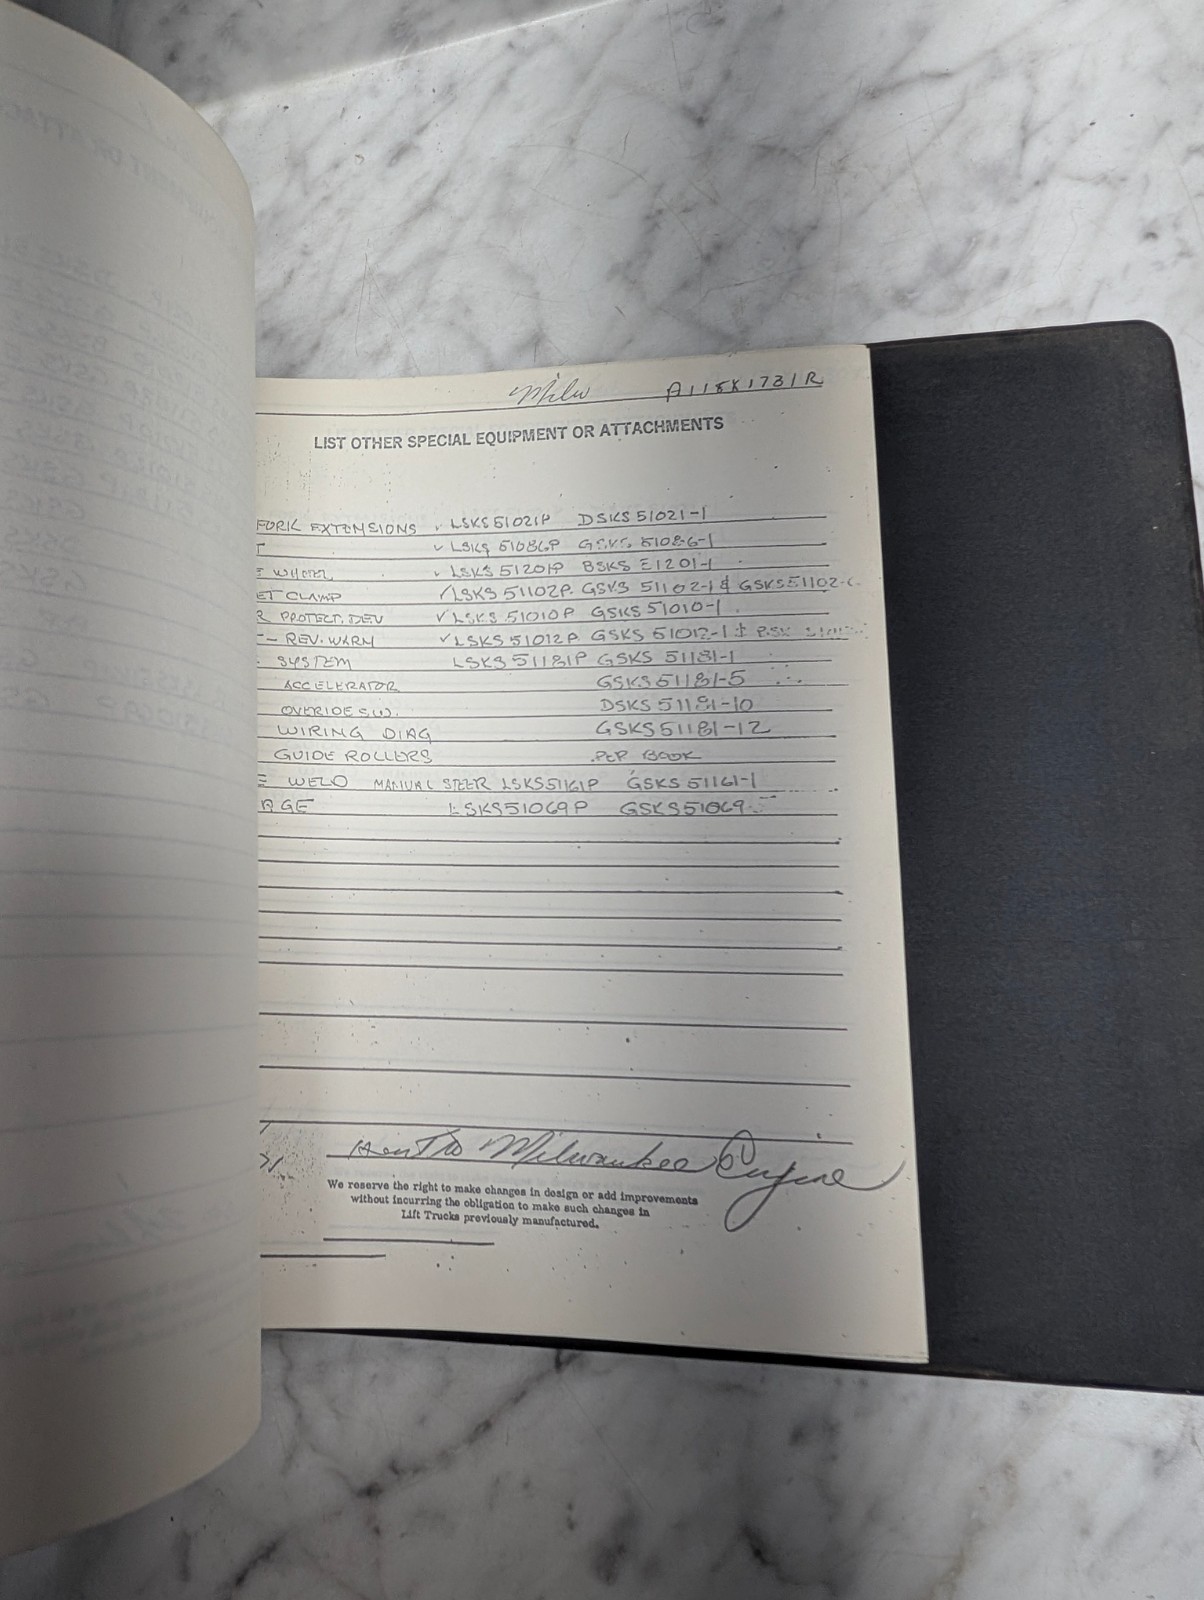 Milw A118K1731R
LIST OTHER SPECIAL EQUIPMENT OR ATTACHMENTS
FORK EXTENSIONS ✓ LSKS51021P DSKS 51021-1
T ✓ LSKS 51086P GSKS 51086-1
LSKS 51201P BSKS E1201-1
ET CLAMP ✓ LSKS 51102P. GSKS 51102-1 & GSKSE1102-
R PROTECT. DEV ✓ LSKS 51010P GSKS 51010-1
- REV. WARM ✓ LSKS 51012P GSKS 51012-1 &
SYSTEM LSKS 51181P GSKS 51181-1
ACCELERATOR GSKS 51181-5
OVERIDE SW. DSKS 51181-10
WIRING DIAG GSKS 51181-12
GUIDE ROLLERS PCP BOOK
E WELD MANUAL STEER LSKS51161P GSKS 51161-1
GE LSKS51069P GSKS51069
Sent to Milwaukee Engine
We reserve the right to make changes in design or add improvements
without incurring the obligation to make such changes in
Lift Trucks previously manufactured.